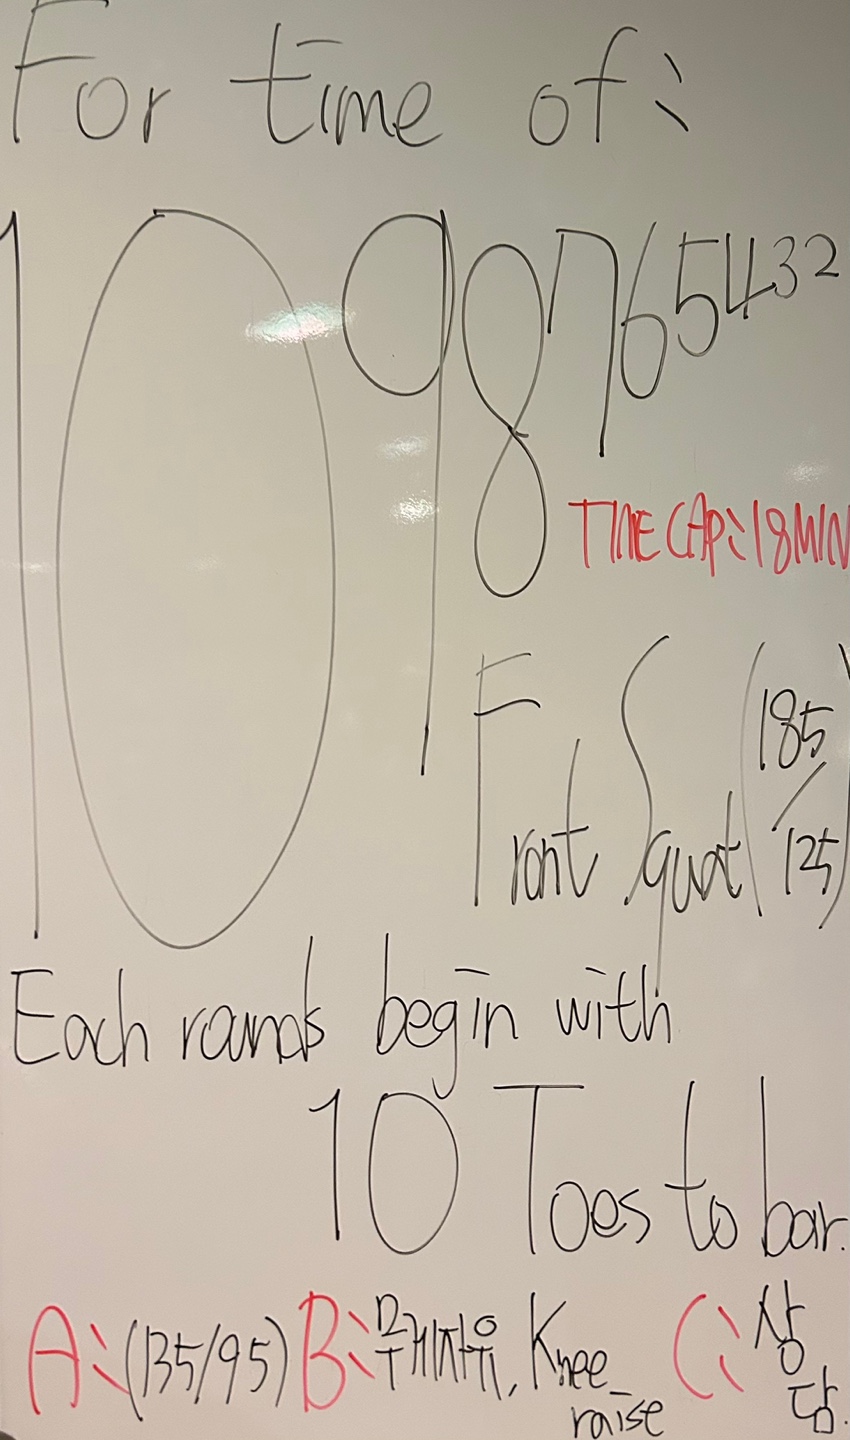 For time of:
10 9 8 7 6 5 4 3 2
TIME CAP: 18 MIN
Front Squat (185/125)
Each rounds begin with
10 Toes to bar.
A: (135/95) B: 무게자유, Knee raise C: 상담.